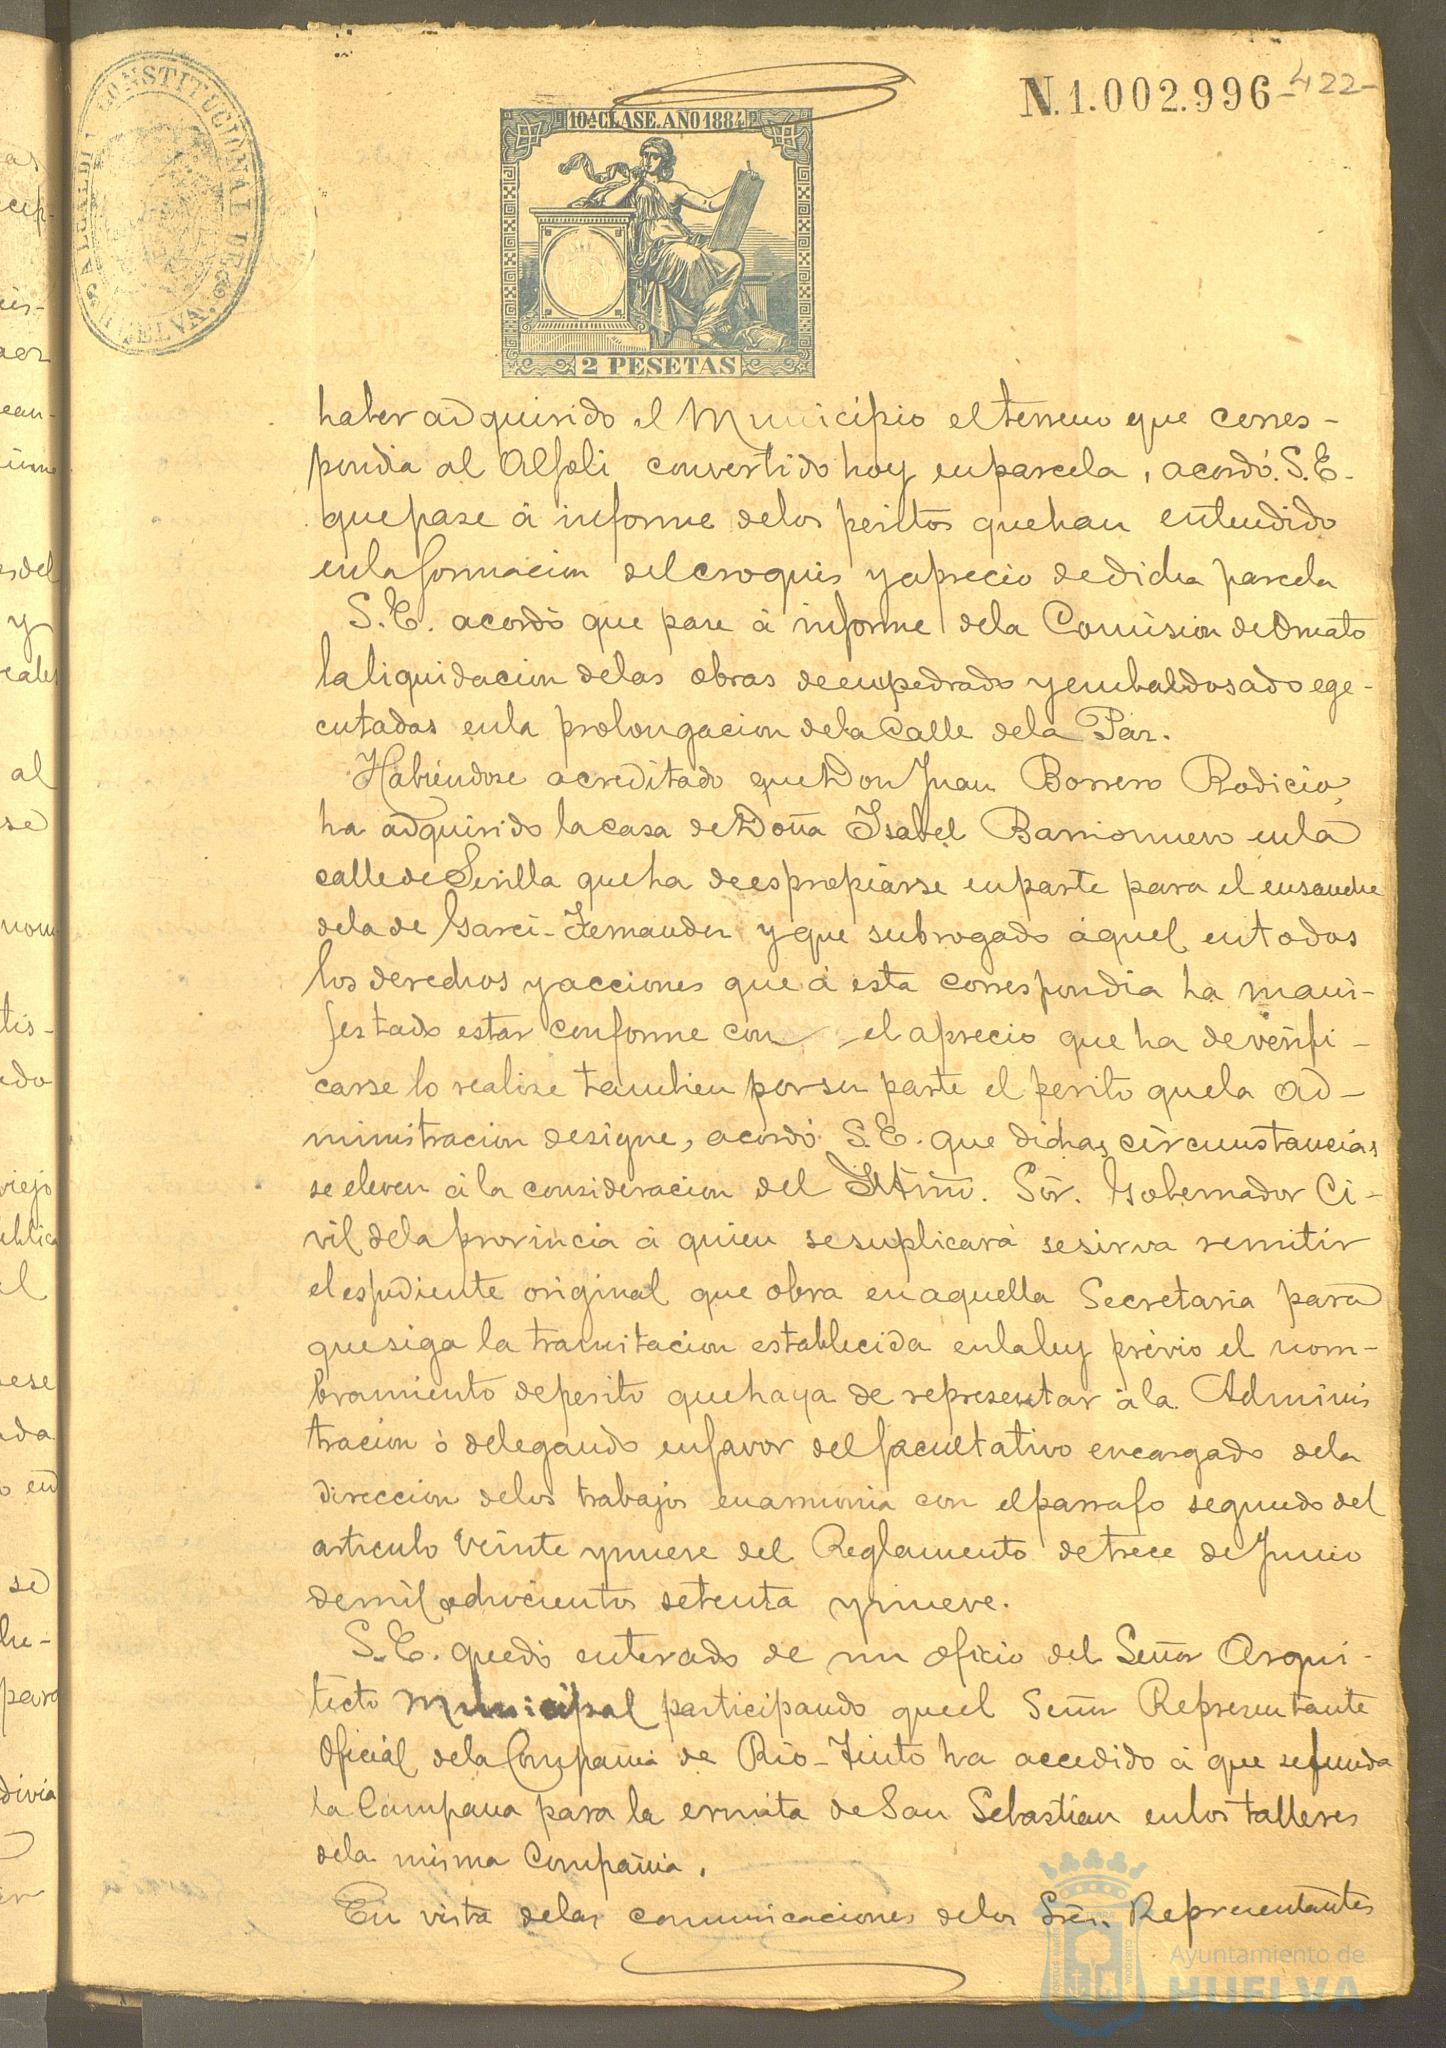 N.1.002.996 -422-
ALCALDIA CONSTITUCIONAL DE HUELVA.
10ª CLASE. AÑO 1884
2 PESETAS
haber adquirido el Municipio el terreno que corres-
pondia al Alfoli convertido hoy en parcela, acordó S.E.
que pase á informe de los peritos que han entendido
en la formacion del croquis y aprecio de dicha parcela
S.E. acordó que pase á informe de la Comision de Ornato
la liquidacion de las obras de empedrado y embaldosado ege-
cutadas en la prolongacion de la Calle de la Paz.
Habiendose acreditado que Don Juan Borrero Rodicio,
ha adquirido la casa de Doña Isabel Barrionuevo en la
calle de Sevilla que ha de espropiarse en parte para el ensanche
de la de Garci-Fernandez y que subrogado áquel en todos
los derechos y acciones que á esta correspondia ha mani-
festado estar conforme con el aprecio que ha de verifi-
carse lo realize tambien por su parte el perito que la ad-
ministracion designe, acordó S.E. que dichas circunstancias
se eleven á la consideracion del Iltmo. Sór. Gobernador Ci-
vil de la provincia á quien se suplicará se sirva remitir
el espediente original que obra en aquella Secretaria para
que siga la tramitacion establecida en la ley prévio el nom-
bramiento de perito que haya de representar á la Adminis
tracion ó delegando en favor del facultativo encargado de la
direccion de los trabajos en armonia con el parrafo segundo del
articulo veinte y nueve del Reglamento de trece de Junio
de mil ochocientos setenta y nueve.
S.E. quedó enterado de un oficio del Señor Arqui-
tecto Municipal participando que el Señor Representante
Oficial de la Compañia de Rio-Tinto ha accedido á que se funda
la Campana para la ermita de San Sebastian en los talleres
de la misma Compañia.
En vista de las comunicaciones de los Sres. Representantes
Ayuntamiento de
HUELVA